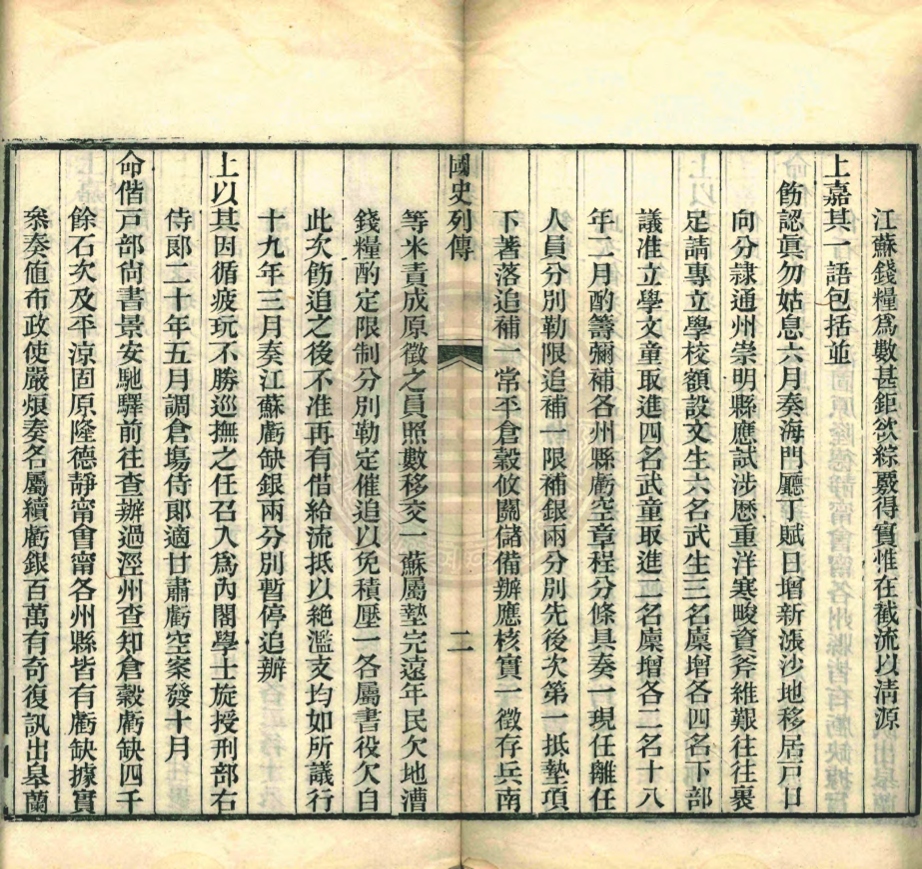 江蘇錢糧爲數甚鉅欲綜覈得實惟在截流以清源
上嘉其一語包括並
飭認眞勿姑息六月奏海門廳丁賦日增新漲沙地移居戸口
向分隷通州崇明縣應試涉歴重洋寒畯資斧維艱往往裹
足請專立學校額設文生六名武生三名廩增各四名下部
議准立學文童取進四名武童取進二名廩增各二名十八
年二月酌籌彌補各州縣虧空章程分條具奏一現任離任
人員分別勒限追補一限補銀兩分別先後次第一抵墊項
下著落追補一常平倉穀攸關儲備辦應核實一徵存兵南
國史列傳
二
等米責成原徵之員照數移交一蘇屬墊完遠年民欠地漕
錢糧酌定限制分別勒定催追以免積壓一各屬書役欠自
此次飭追之後不准再有借給流抵以絶濫支均如所議行
十九年三月奏江蘇虧缺銀兩分別暫停追辦
上以其因循疲玩不勝巡撫之任召入爲內閣學士旋授刑部右
侍郎二十年五月調倉場侍郎適甘肅虧空案發十月
命偕戸部尙書景安馳驛前往查辦過涇州查知倉穀虧缺四千
餘石次及平涼固原隆德靜甯會甯各州縣皆有虧缺據實
叅奏値布政使嚴烺奏各屬續虧銀百萬有奇復訊出皋蘭